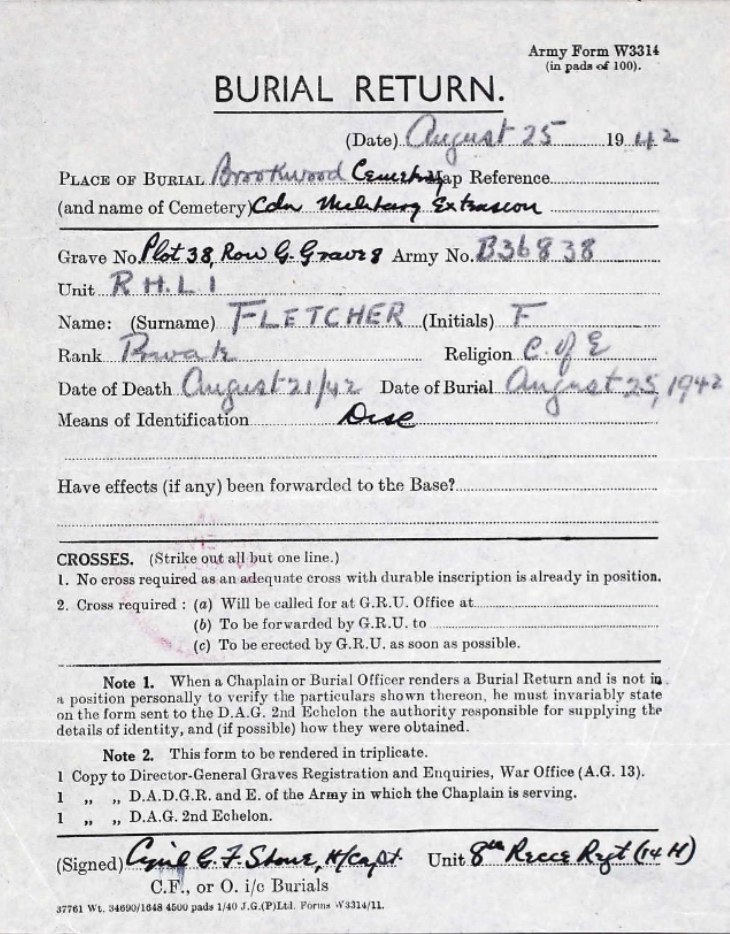 Army Form W3314
(in pads of 100).
BURIAL RETURN.
(Date) August 25 1942
PLACE OF BURIAL Brookwood Cemetery Map Reference
(and name of Cemetery) Cdn Military Extension
Grave No. Plot 38, Row G. Grave 8 Army No. B36838
Unit R.H.L I
Name: (Surname) FLETCHER (Initials) F
Rank Private Religion C. of E
Date of Death August 21/42 Date of Burial August 25, 1942
Means of Identification Disc
Have effects (if any) been forwarded to the Base?
CROSSES. (Strike out all but one line.)
1. No cross required as an adequate cross with durable inscription is already in position.
2. Cross required : (a) Will be called for at G.R.U. Office at
(b) To be forwarded by G.R.U. to
(c) To be erected by G.R.U. as soon as possible.
Note 1. When a Chaplain or Burial Officer renders a Burial Return and is not in
a position personally to verify the particulars shown thereon, he must invariably state
on the form sent to the D.A.G. 2nd Echelon the authority responsible for supplying the
details of identity, and (if possible) how they were obtained.
Note 2. This form to be rendered in triplicate.
1 Copy to Director-General Graves Registration and Enquiries, War Office (A.G. 13).
1 „ „ D.A.D.G.R. and E. of the Army in which the Chaplain is serving.
1 „ „ D.A.G. 2nd Echelon.
(Signed) Cyril G. F. Stone, H/Capt. Unit 8th Recce Regt (14 H)
C.F., or O. i/c Burials
37761 Wt. 34690/1648 4500 pads 1/40 J.G.(P)Ltd. Forms W3314/11.